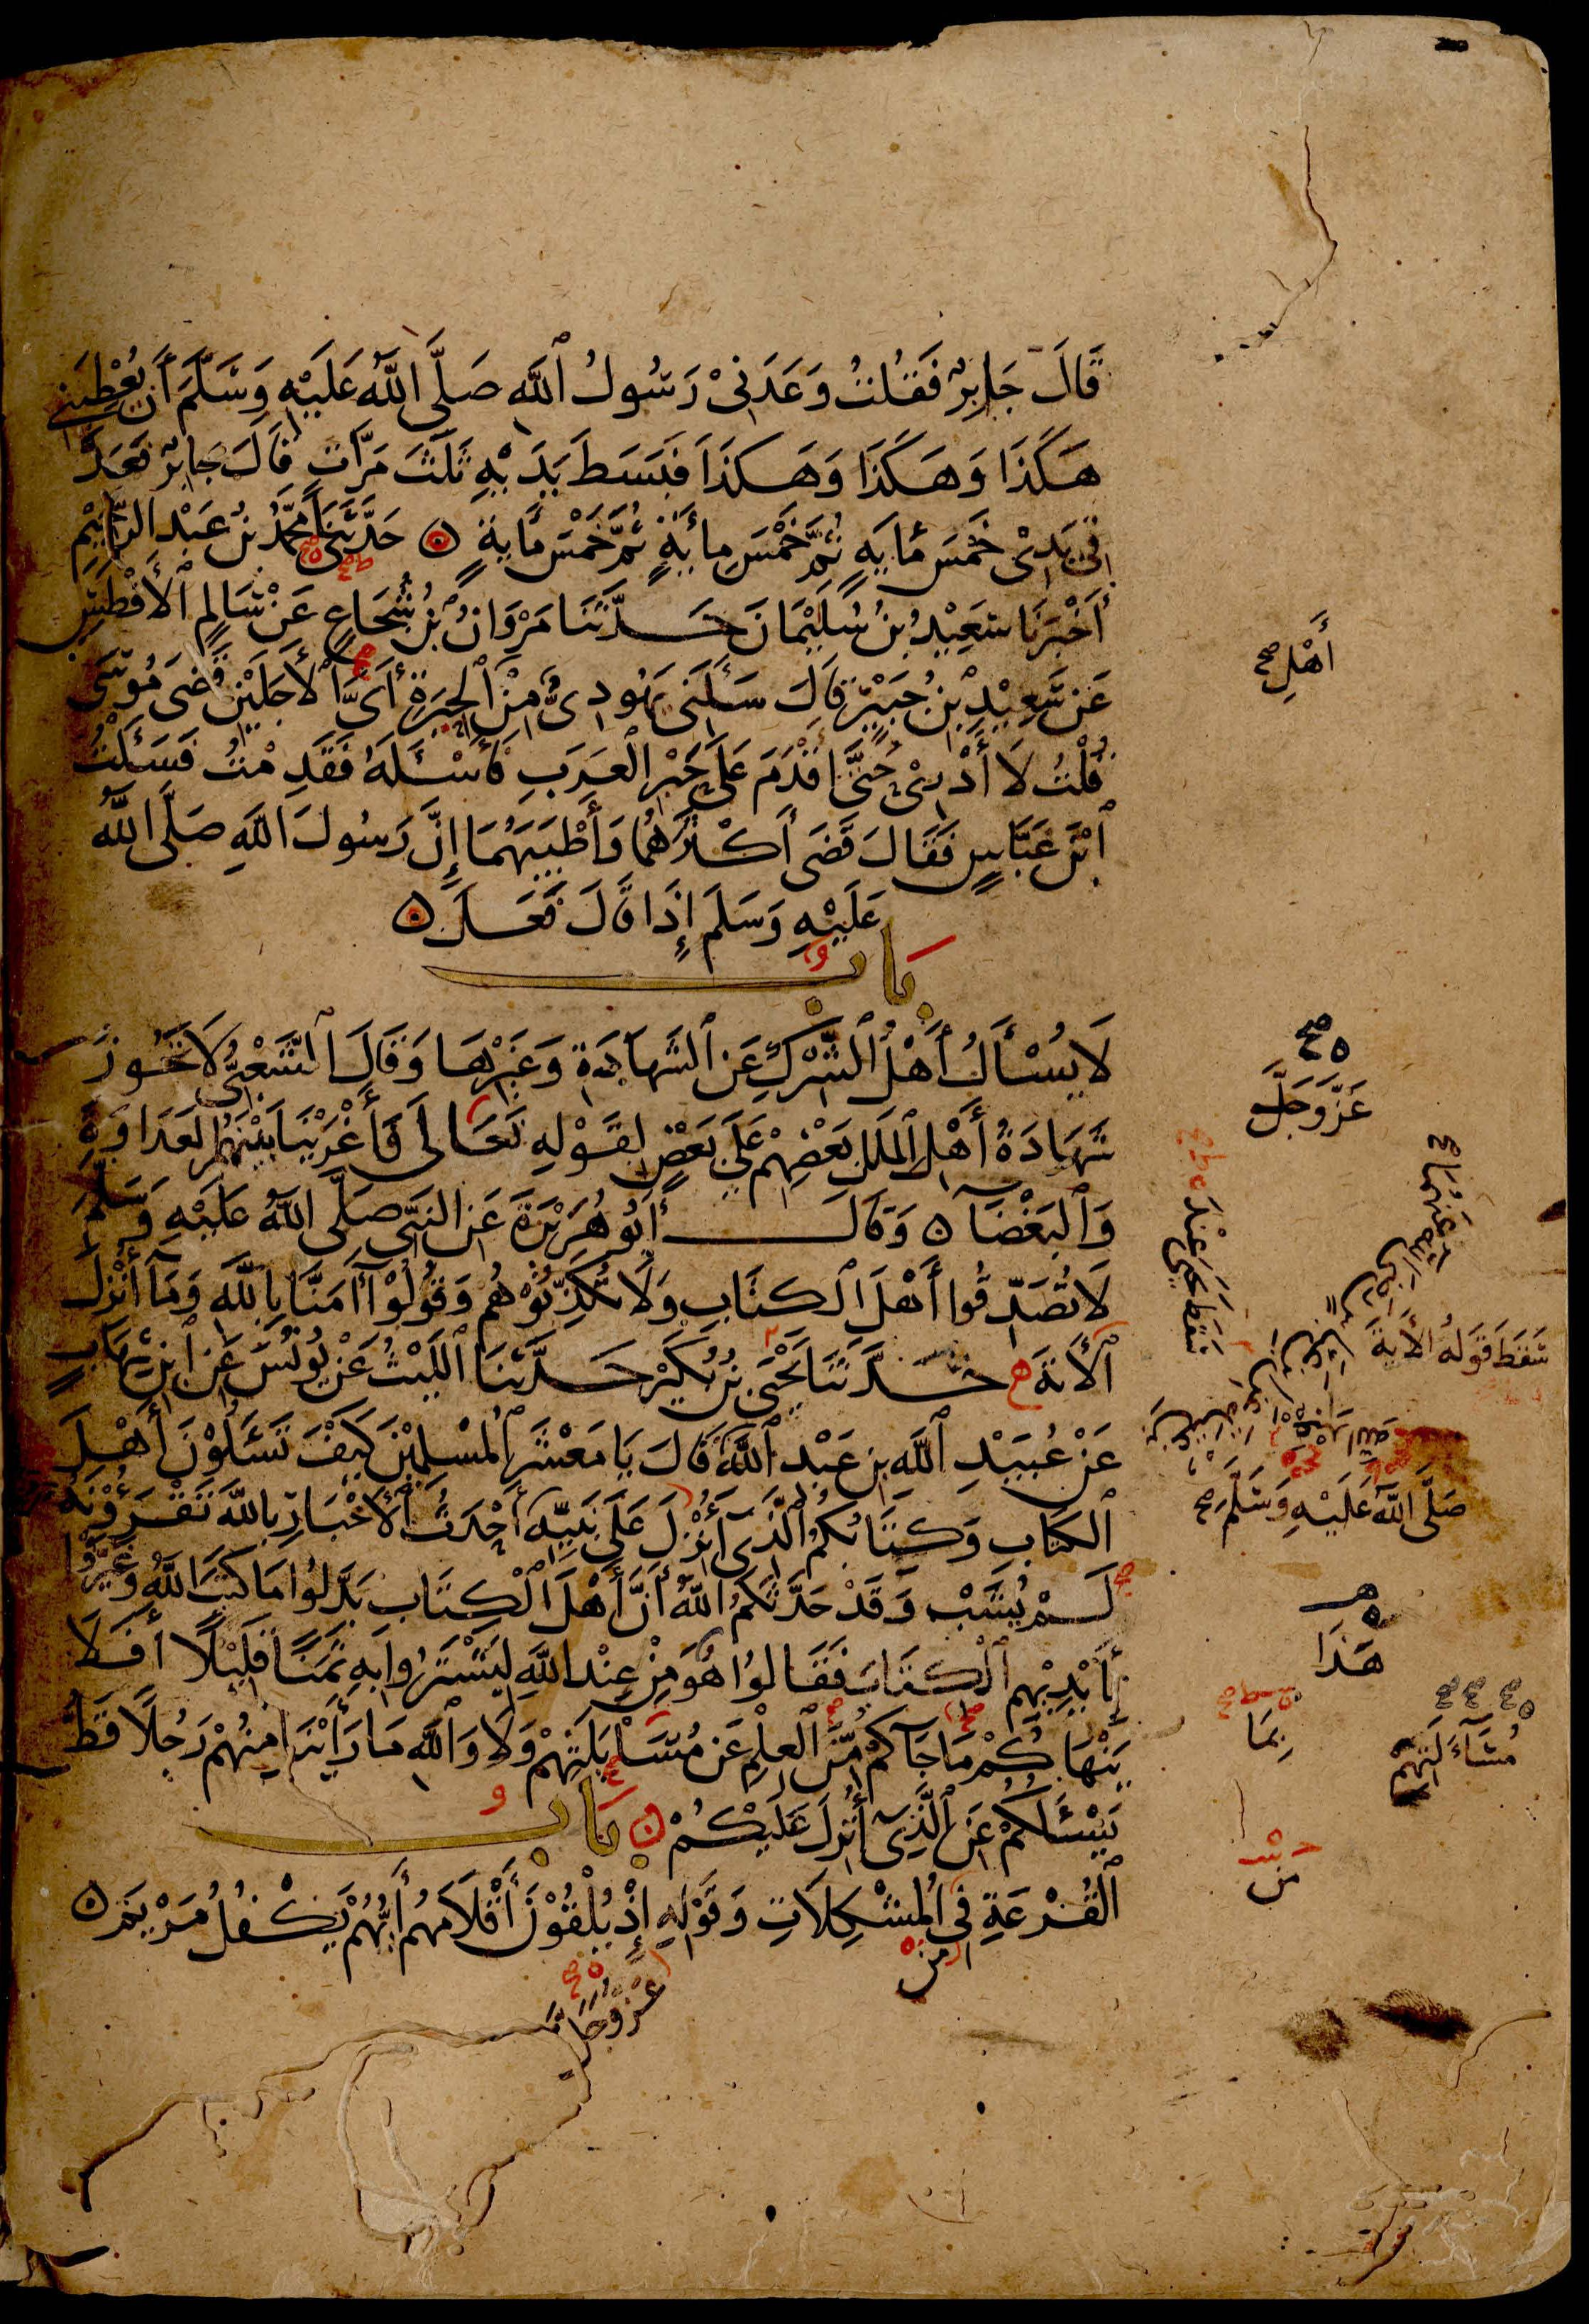 قَالَ جَابِرٌ فَقُلْتُ وَعَدَنِىْ رَسُولُ ٱللَّهِ صَلَّى اللَّهُ عَلَيْهِ وَسَلَّمَ أَن يُعْطِيَنِى
هَكَذَا وَهَكَذَا وَهَكَذَا فَبَسَطَ يَدَيْهِ ثَلَثَ مَرَّاتٍ قَالَ جَابِرٌ فَعَدَّ
فِى يَدِىْ خَمْسَ مِايَةٍ ثُمَّ خَمْسَ مِايَةٍ ثُمَّ خَمْسَ مِايَةٍ ن حَدَّثَنَا مُحَمَّدُ بْنُ عَبْدِ الرَّحِيْمِ
أَخْبَرَنَا سَعِيْدُ بْنُ سُلَيْمَانَ حَدَّثَنَا مَرْوَانُ بْنُ شُجَاعٍ عَنْ سَالِمٍ الْأَفْطَسِ
عَنْ سَعِيْدِ بْنِ جُبَيْرٍ قَالَ سَئَلَنِى يَهُودِىٌّ مِنْ ٱلْحِيرَةِ أَىَّ ٱلْأَجَلَيْنِ قَضَى مُوسَى
قُلْتُ لَا أَدْرِىْ حَتَّى اَقْدَمَ عَلَى حَبْرِ الْعَرَبِ فَأَسْئَلَهُ فَقَدِمْتُ فَسَئَلْتُ
ٱبْنَ عَبَّاسٍ فَقَالَ قَضَى أَكْثَرَهُمَا وَأَطْيَبَهُمَا إِنَّ رَسُولَ اللَّهِ صَلَّى اللَّهُ
عَلَيْهِ وَسَلَّمَ إِذَا قَالَ فَعَلَ ن
بَاب
لَا يُسْأَلُ أَهْلُ ٱلشِّرْكِ عَنِ ٱلشَّهَادَةِ وَغَيْرِهَا وَقَالَ ٱلشَّعْبِىُّ لَا تَجُوزُ
شَهَادَةُ أَهْلِ ٱلْمِلَلِ بَعْضِهِمْ عَلَى بَعْضٍ لِقَوْلِهِ تَعَالَى فَأَغْرَيْنَا بَيْنَهُمُ الْعَدَاوَةَ
وَٱلْبَغْضَآ ن وَقَالَ أَبُو هُرَيْرَةَ عَنِ النَّبِىِّ صَلَّى اللَّهُ عَلَيْهِ وَسَلَّمَ
لَا تُصَدِّقُوا أَهْلَ ٱلْكِتَابِ وَلَا تُكَذِّبُوْهُمْ وَقُولُوْا آمَنَّا بِاللَّهِ وَمَآ أُنْزِلَ
ٱلْأيَةَ حَدَّثَنَا يَحْيَى بْنُ بُكَيْرٍ حَدَّثَنَا اللَّيْثُ عَنْ يُونُسَ عَنِ ابْنِ شِهَابٍ
عَنْ عُبَيْدِ ٱللَّهِ بْنِ عَبْدِ ٱللَّهِ قَالَ يَا مَعْشَرَ ٱلْمُسْلِمِيْنَ كَيْفَ تَسْئَلُوْنَ أَهْلَ
ٱلْكِتَابِ وَكِتَابُكُمُ ٱلَّذِىٓ أُنْزِلَ عَلَى نَبِيِّهِ أَحْدَثُ ٱلْأَخْبَارِ بِاللَّهِ تَقْرَءُوْنَهُ
لَمْ يُشَبْ وَقَدْ حَدَّثَكُمُ اللَّهُ أَنَّ أَهْلَ ٱلْكِتَابِ بَدَّلُوا مَا كَتَبَ اللَّهُ وَغَيَّرُوْا
بِأَيْدِيْهِمِ ٱلْكِتَابَ فَقَالُوا هُوَ مِنْ عِنْدِ اللَّهِ لِيَشْتَرُوا بِهِ ثَمَنًا قَلِيْلًا أَفَلَا
يَنْهَاكُمْ مَا جَآكُمْ مِّنَ الْعِلْمِ عَنْ مُسَايَلَتِهِمْ وَلَا وَٱللَّهِ مَا رَأَيْنَا مِنْهُمْ رَجُلًا قَطُّ
يَسْئَلُكُمْ عَنِ ٱلَّذِىٓ أُنْزِلَ عَلَيْكُمْ ن بَاب
ٱلْقُرْعَةِ فِى ٱلْمُشْكِلَاتِ وَقَوْلِهِ إِذْ يُلْقُوْنَ أَقْلَامَهُمْ أَيُّهُمْ يَكْفُلُ مَرْيَمَ ن
مِن
عَزَّ وَجَلَّ
أَهْلِ صح
عَزَّ وَجَلَّ
سَقَطَ قَوْلُهُ الْأيَةَ
صَلَّى اللَّهُ عَلَيْهِ وَسَلَّمَ صح
هَذَا
بِمَا
مُسَآءَلَتِهِمْ
مِنْ